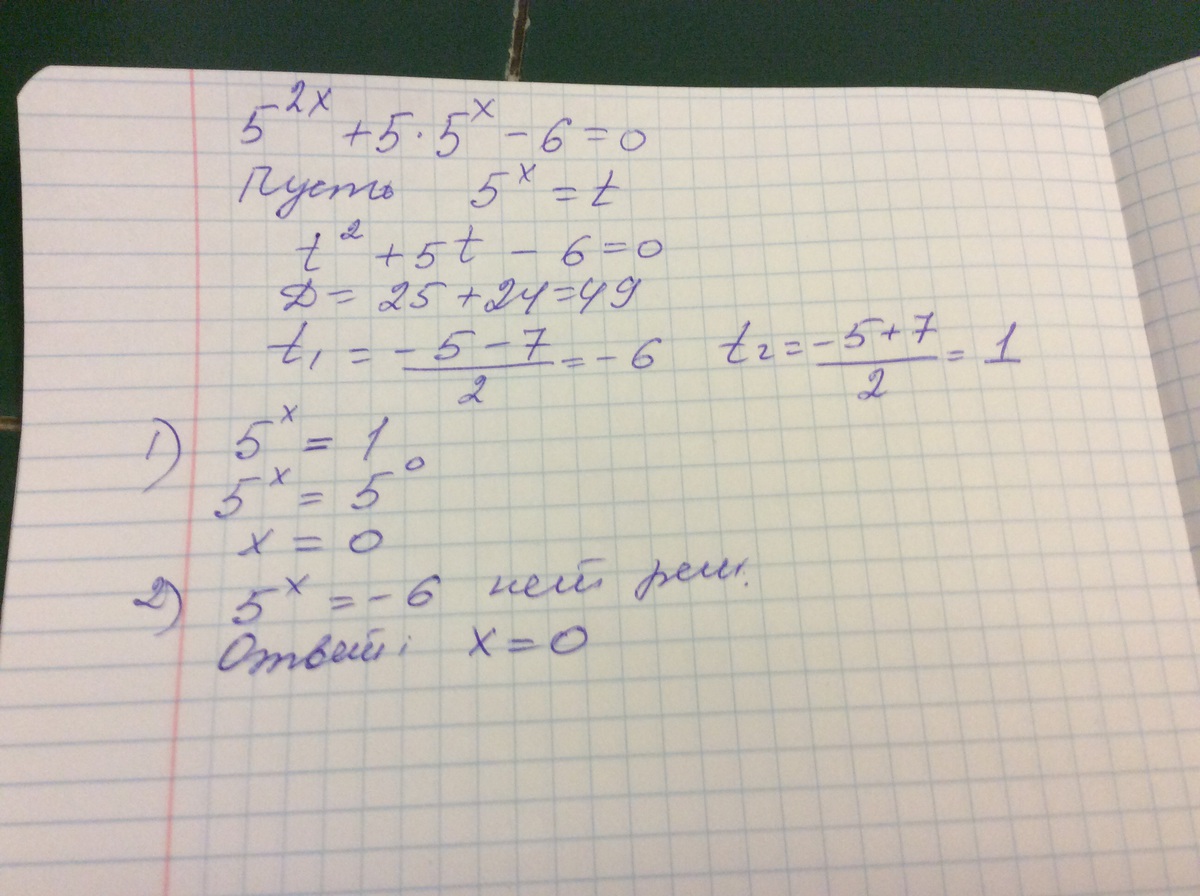 5^{2x} + 5 · 5^x − 6 = 0
Пусть 5^x = t
t^2 + 5t − 6 = 0
D = 25 + 24 = 49
t_1 = \frac{-5-7}{2} = −6 t_2 = \frac{-5+7}{2} = 1
1) 5^x = 1
5^x = 5^0
x = 0
2) 5^x = −6 нет реш.
Ответ: x = 0